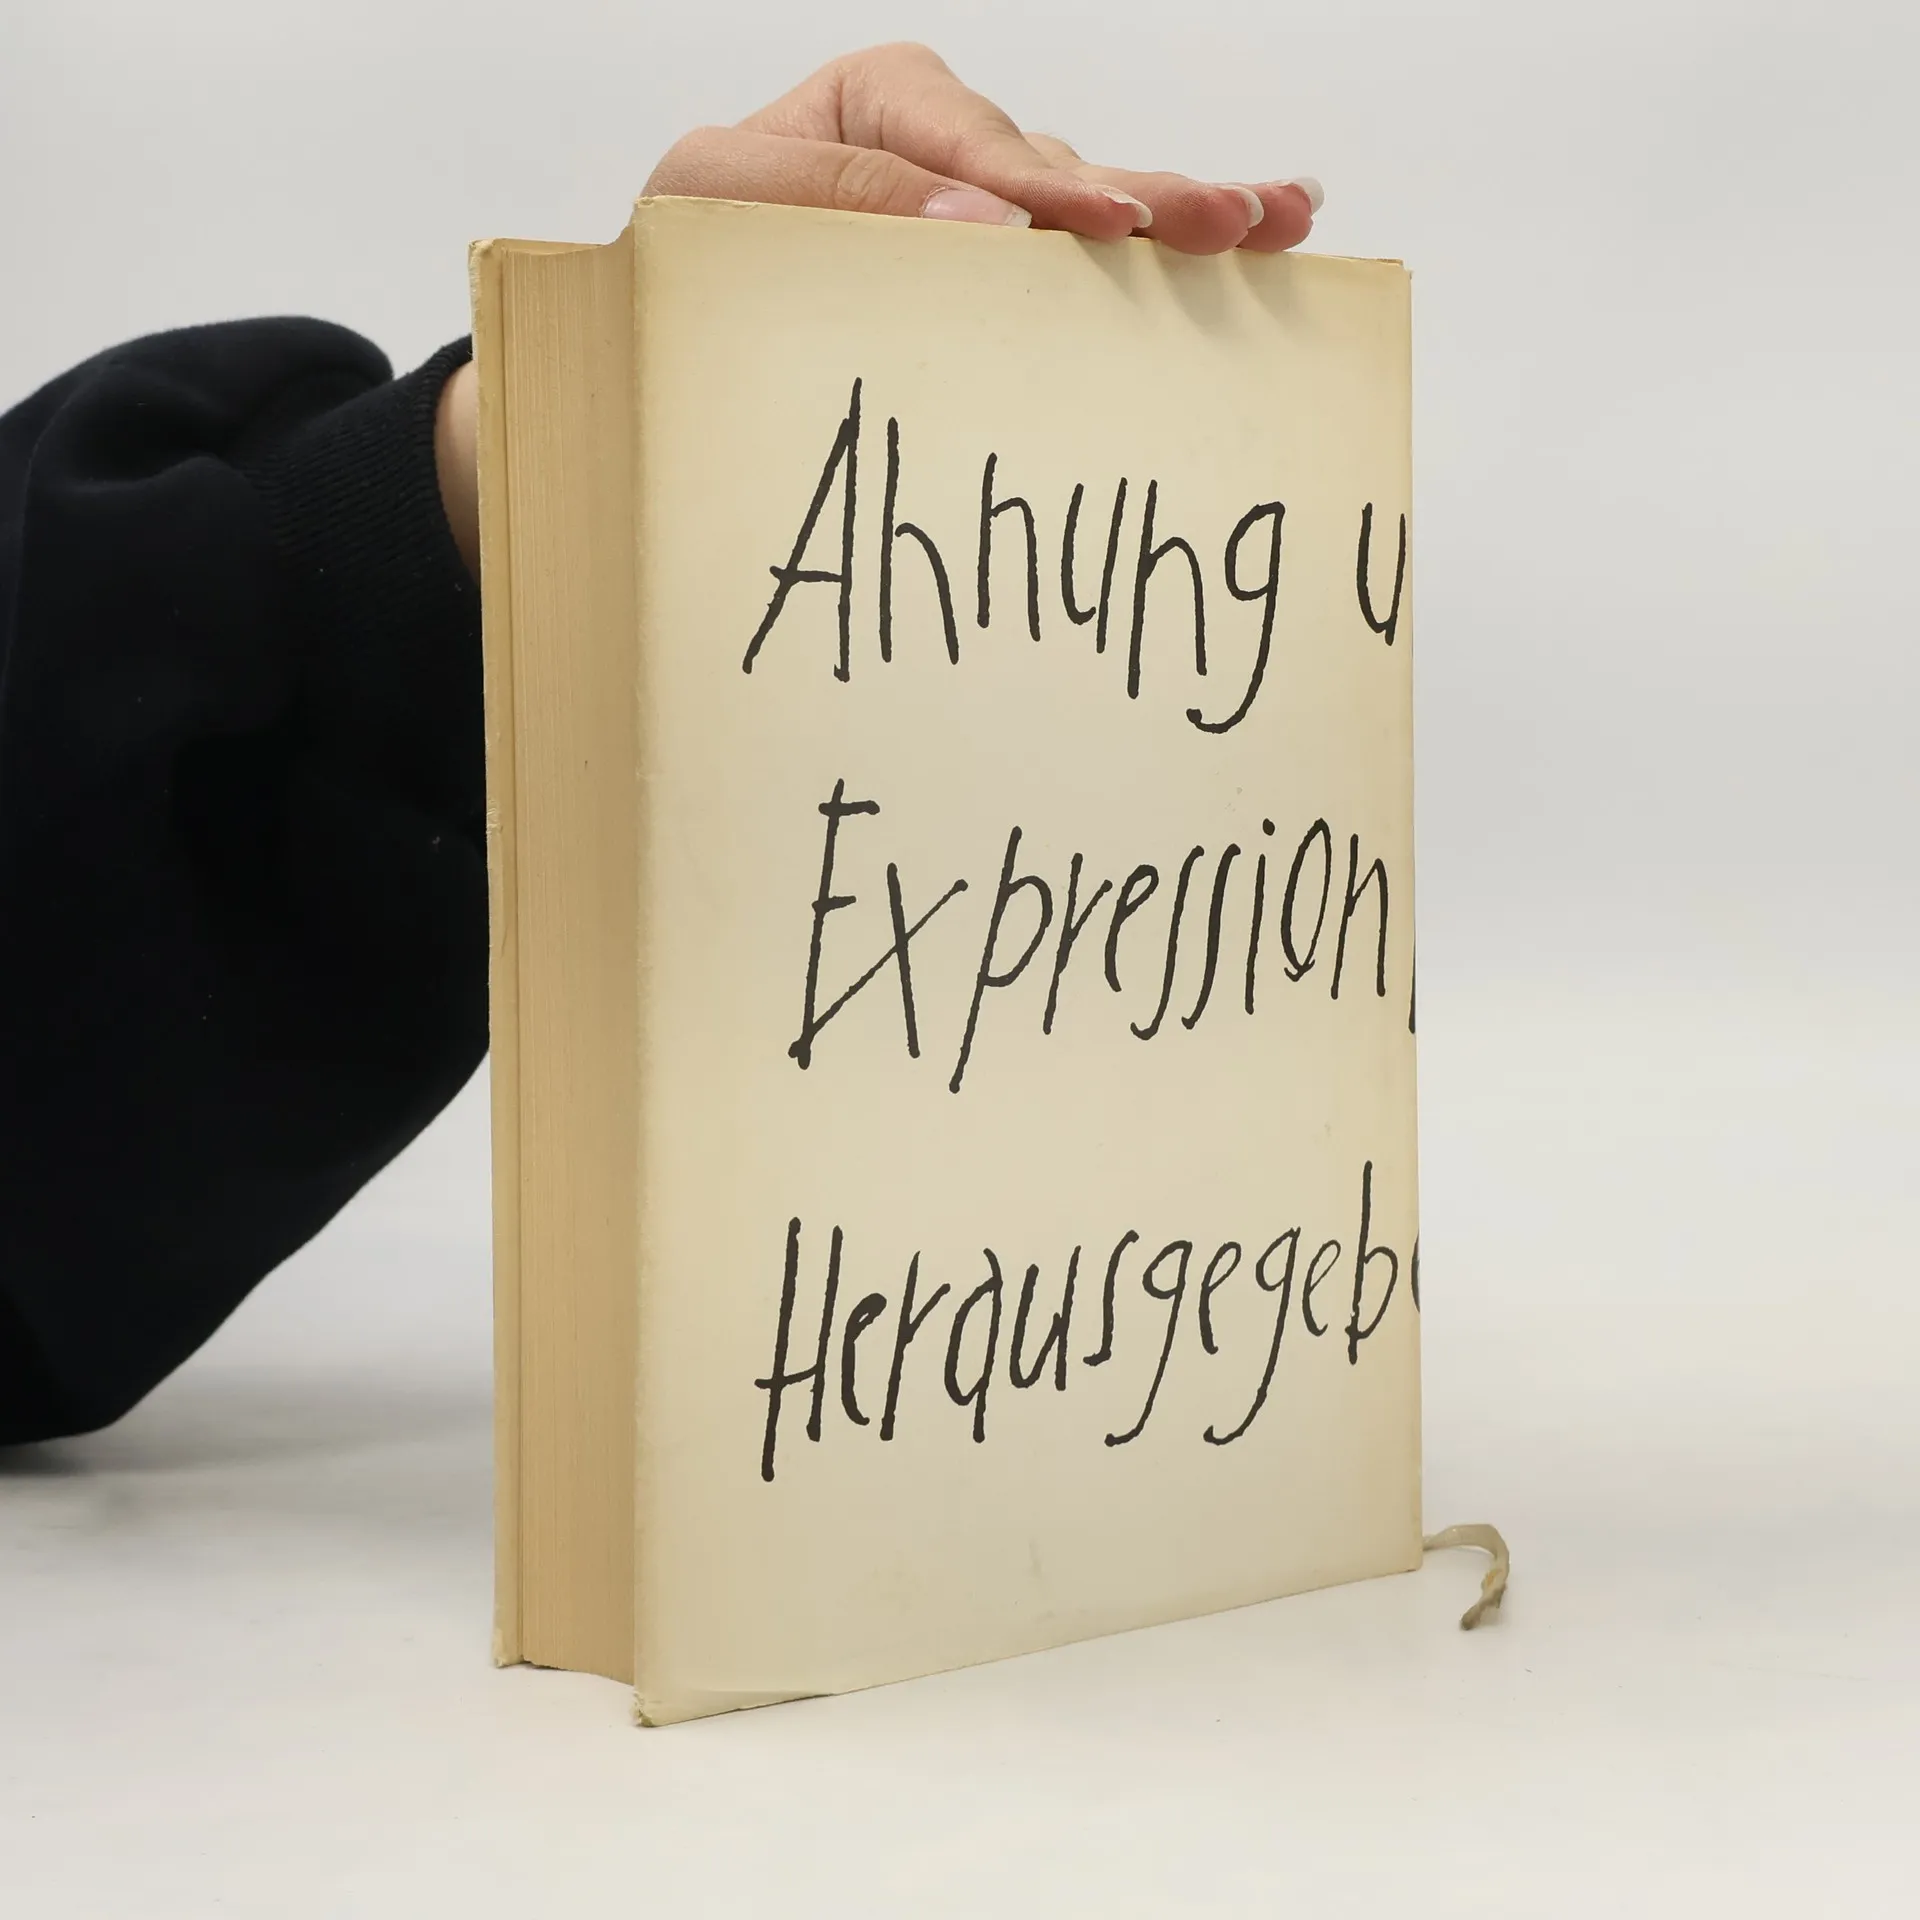 Ahnung u
Expression
Herausgegeb